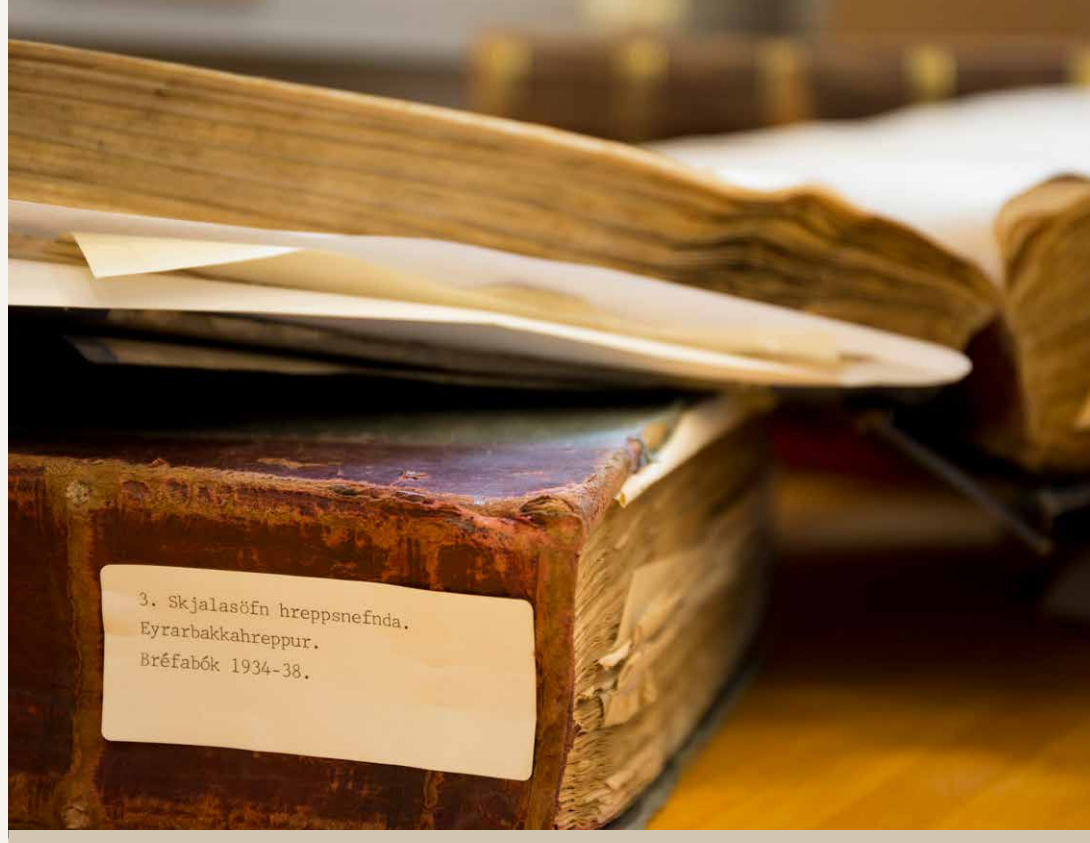 3. Skjalasöfn hreppsnefnda.
Eyrarbakkahreppur.
Bréfabók 1934-38.